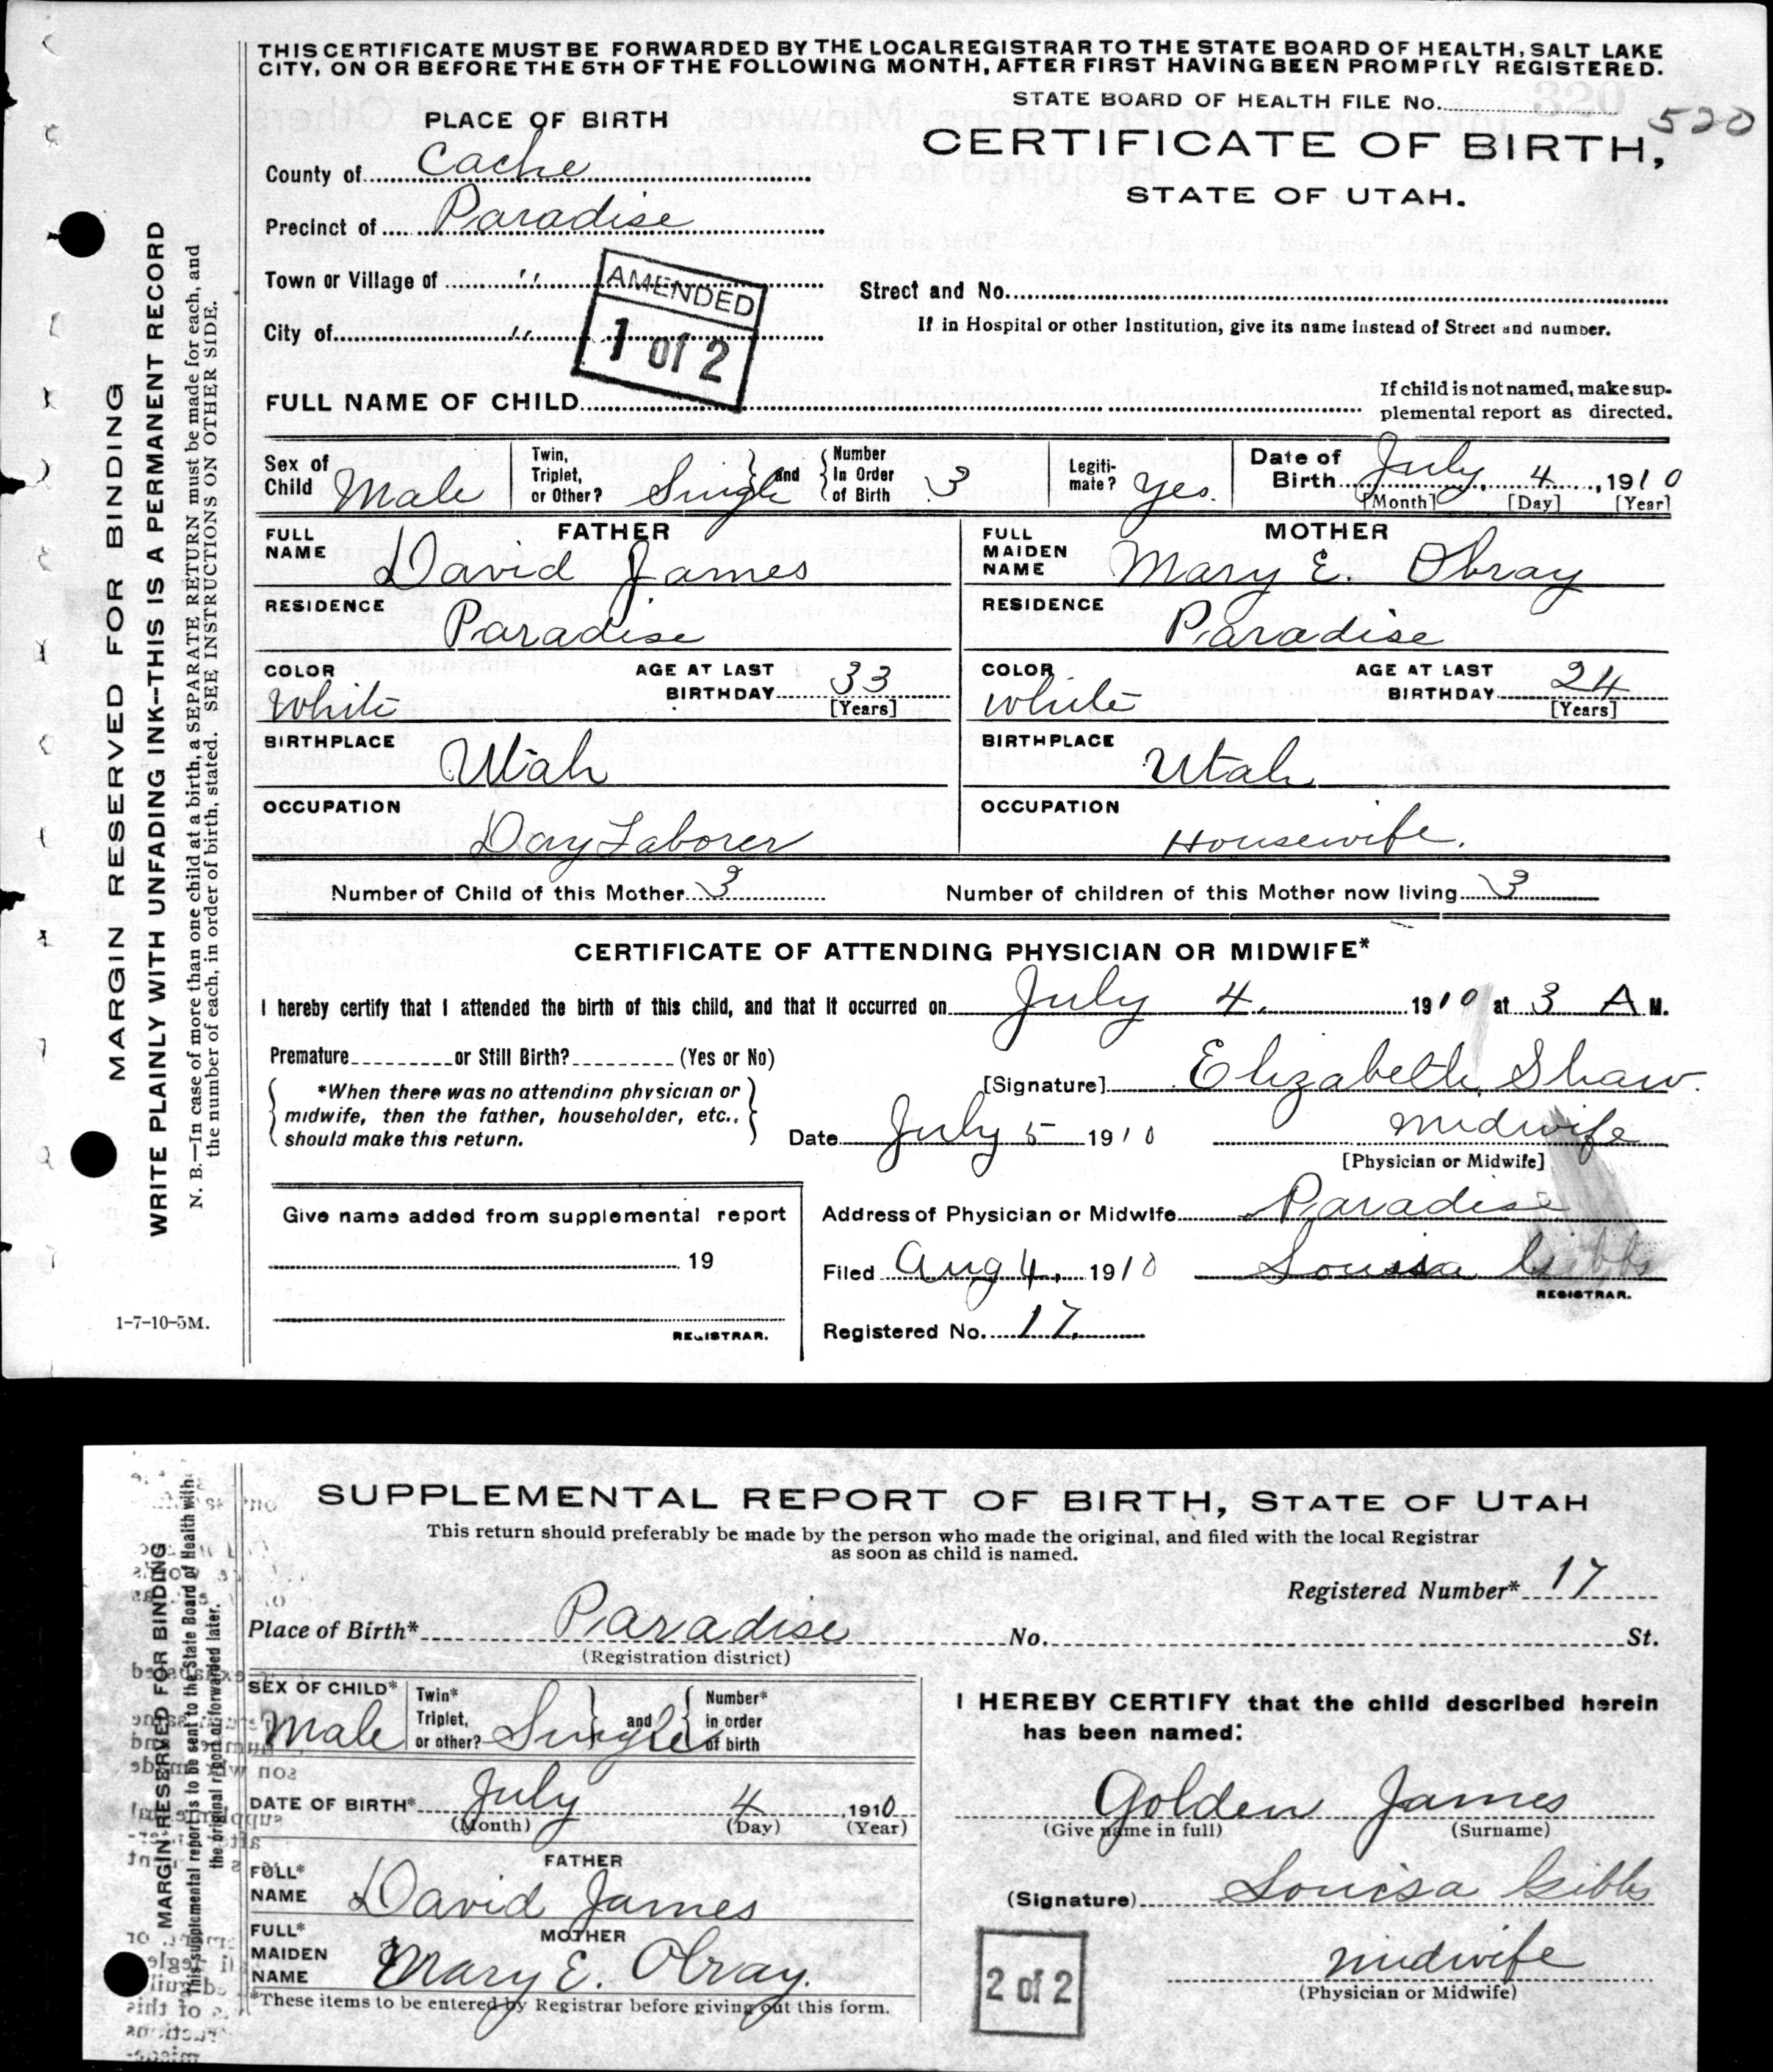 THIS CERTIFICATE MUST BE FORWARDED BY THE LOCAL REGISTRAR TO THE STATE BOARD OF HEALTH, SALT LAKE
CITY, ON OR BEFORE THE 5TH OF THE FOLLOWING MONTH, AFTER FIRST HAVING BEEN PROMPTLY REGISTERED.
STATE BOARD OF HEALTH FILE No. 520
PLACE OF BIRTH
CERTIFICATE OF BIRTH,
STATE OF UTAH.
County of Cache
Precinct of Paradise
Town or Village of "
Street and No.
City of "
If in Hospital or other Institution, give its name instead of Street and number.
AMENDED
1 of 2
FULL NAME OF CHILD
If child is not named, make sup-
plemental report as directed.
Sex of Child Male
Twin, Triplet, or Other? Single and Number In Order of Birth 3
Legiti-mate? Yes.
Date of Birth July 4, 1910
[Month] [Day] [Year]
FATHER
FULL NAME David James
RESIDENCE Paradise
COLOR White
AGE AT LAST BIRTHDAY 33
[Years]
BIRTHPLACE Utah
OCCUPATION Day Laborer
MOTHER
FULL MAIDEN NAME Mary E. Obray
RESIDENCE Paradise
COLOR White
AGE AT LAST BIRTHDAY 24
[Years]
BIRTHPLACE Utah
OCCUPATION Housewife.
Number of Child of this Mother 3
Number of children of this Mother now living 3
CERTIFICATE OF ATTENDING PHYSICIAN OR MIDWIFE*
I hereby certify that I attended the birth of this child, and that it occurred on July 4, 1910 at 3 A M.
Premature or Still Birth? (Yes or No)
*When there was no attending physician or
midwife, then the father, householder, etc.,
should make this return.
[Signature] Elizabeth Shaw.
Date July 5 1910
midwife
[Physician or Midwife]
Give name added from supplemental report
19
REGISTRAR.
Address of Physician or Midwife Paradise
Filed Aug 4, 1910 Louisa Gibbs
REGISTRAR.
Registered No. 17
1-7-10-5M.
MARGIN RESERVED FOR BINDING
WRITE PLAINLY WITH UNFADING INK--THIS IS A PERMANENT RECORD
N. B.—In case of more than one child at a birth, a SEPARATE RETURN must be made for each, and
the number of each, in order of birth, stated. SEE INSTRUCTIONS ON OTHER SIDE.
SUPPLEMENTAL REPORT OF BIRTH, STATE OF UTAH
This return should preferably be made by the person who made the original, and filed with the local Registrar
as soon as child is named.
Registered Number* 17
Place of Birth* Paradise No. St.
(Registration district)
SEX OF CHILD* Male
Twin* Triplet, or other? Single and Number* in order of birth
DATE OF BIRTH* July 4, 1910
(Month) (Day) (Year)
FATHER
FULL* NAME David James
MOTHER
FULL* MAIDEN NAME Mary E. Obray.
*These items to be entered by Registrar before giving out this form.
I HEREBY CERTIFY that the child described herein
has been named:
Golden James
(Give name in full) (Surname)
(Signature) Louisa Gibbs
midwife
(Physician or Midwife)
2 of 2
MARGIN RESERVED FOR BINDING
This supplemental report is to be sent to the State Board of Health with
the original report or forwarded later.